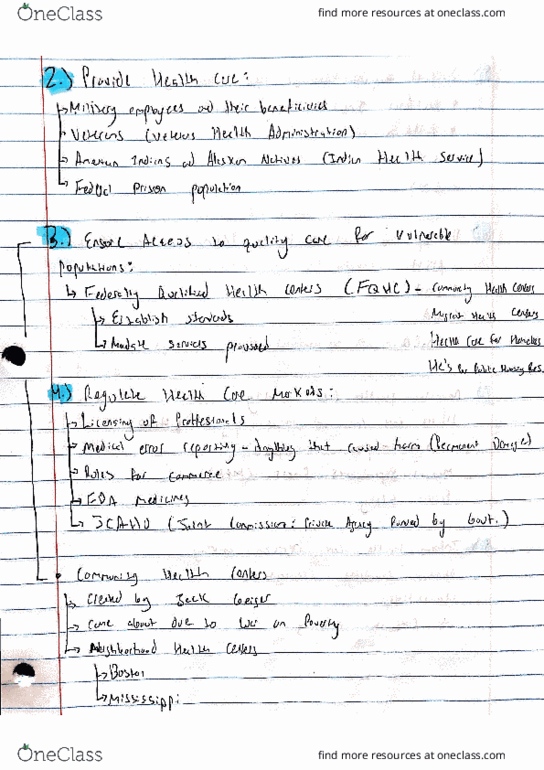 OneClass
find more resources at oneclass.com
2.) Provide Health Care:
Military employees and their beneficiaries
Veterans (Veterans Health Administration)
American Indians and Alaskan Natives (Indian Health Service)
Federal Prison population
3.) Ensure Access to quality care for vulnerable
Populations:
Federally Qualified Health Centers (FQHC) - Community Health Centers
Migrant Health Centers
Establish standards
Health Care for Homeless
Mandate services provided
HC's for Public Housing Res.
4.) Regulate Health Care Markets:
Licensing of Professionals
Medical error reporting - Anything that caused harm (Permanent Damage)
Rules for commerce
FDA Medicines
JCAHO (Joint Commission: Private Agency by Govt.)
Community Health Centers
Created by Jack Geiger
Came about due to War on Poverty
Neighborhood Health Centers
Boston
Mississippi
OneClass
find more resources at oneclass.com